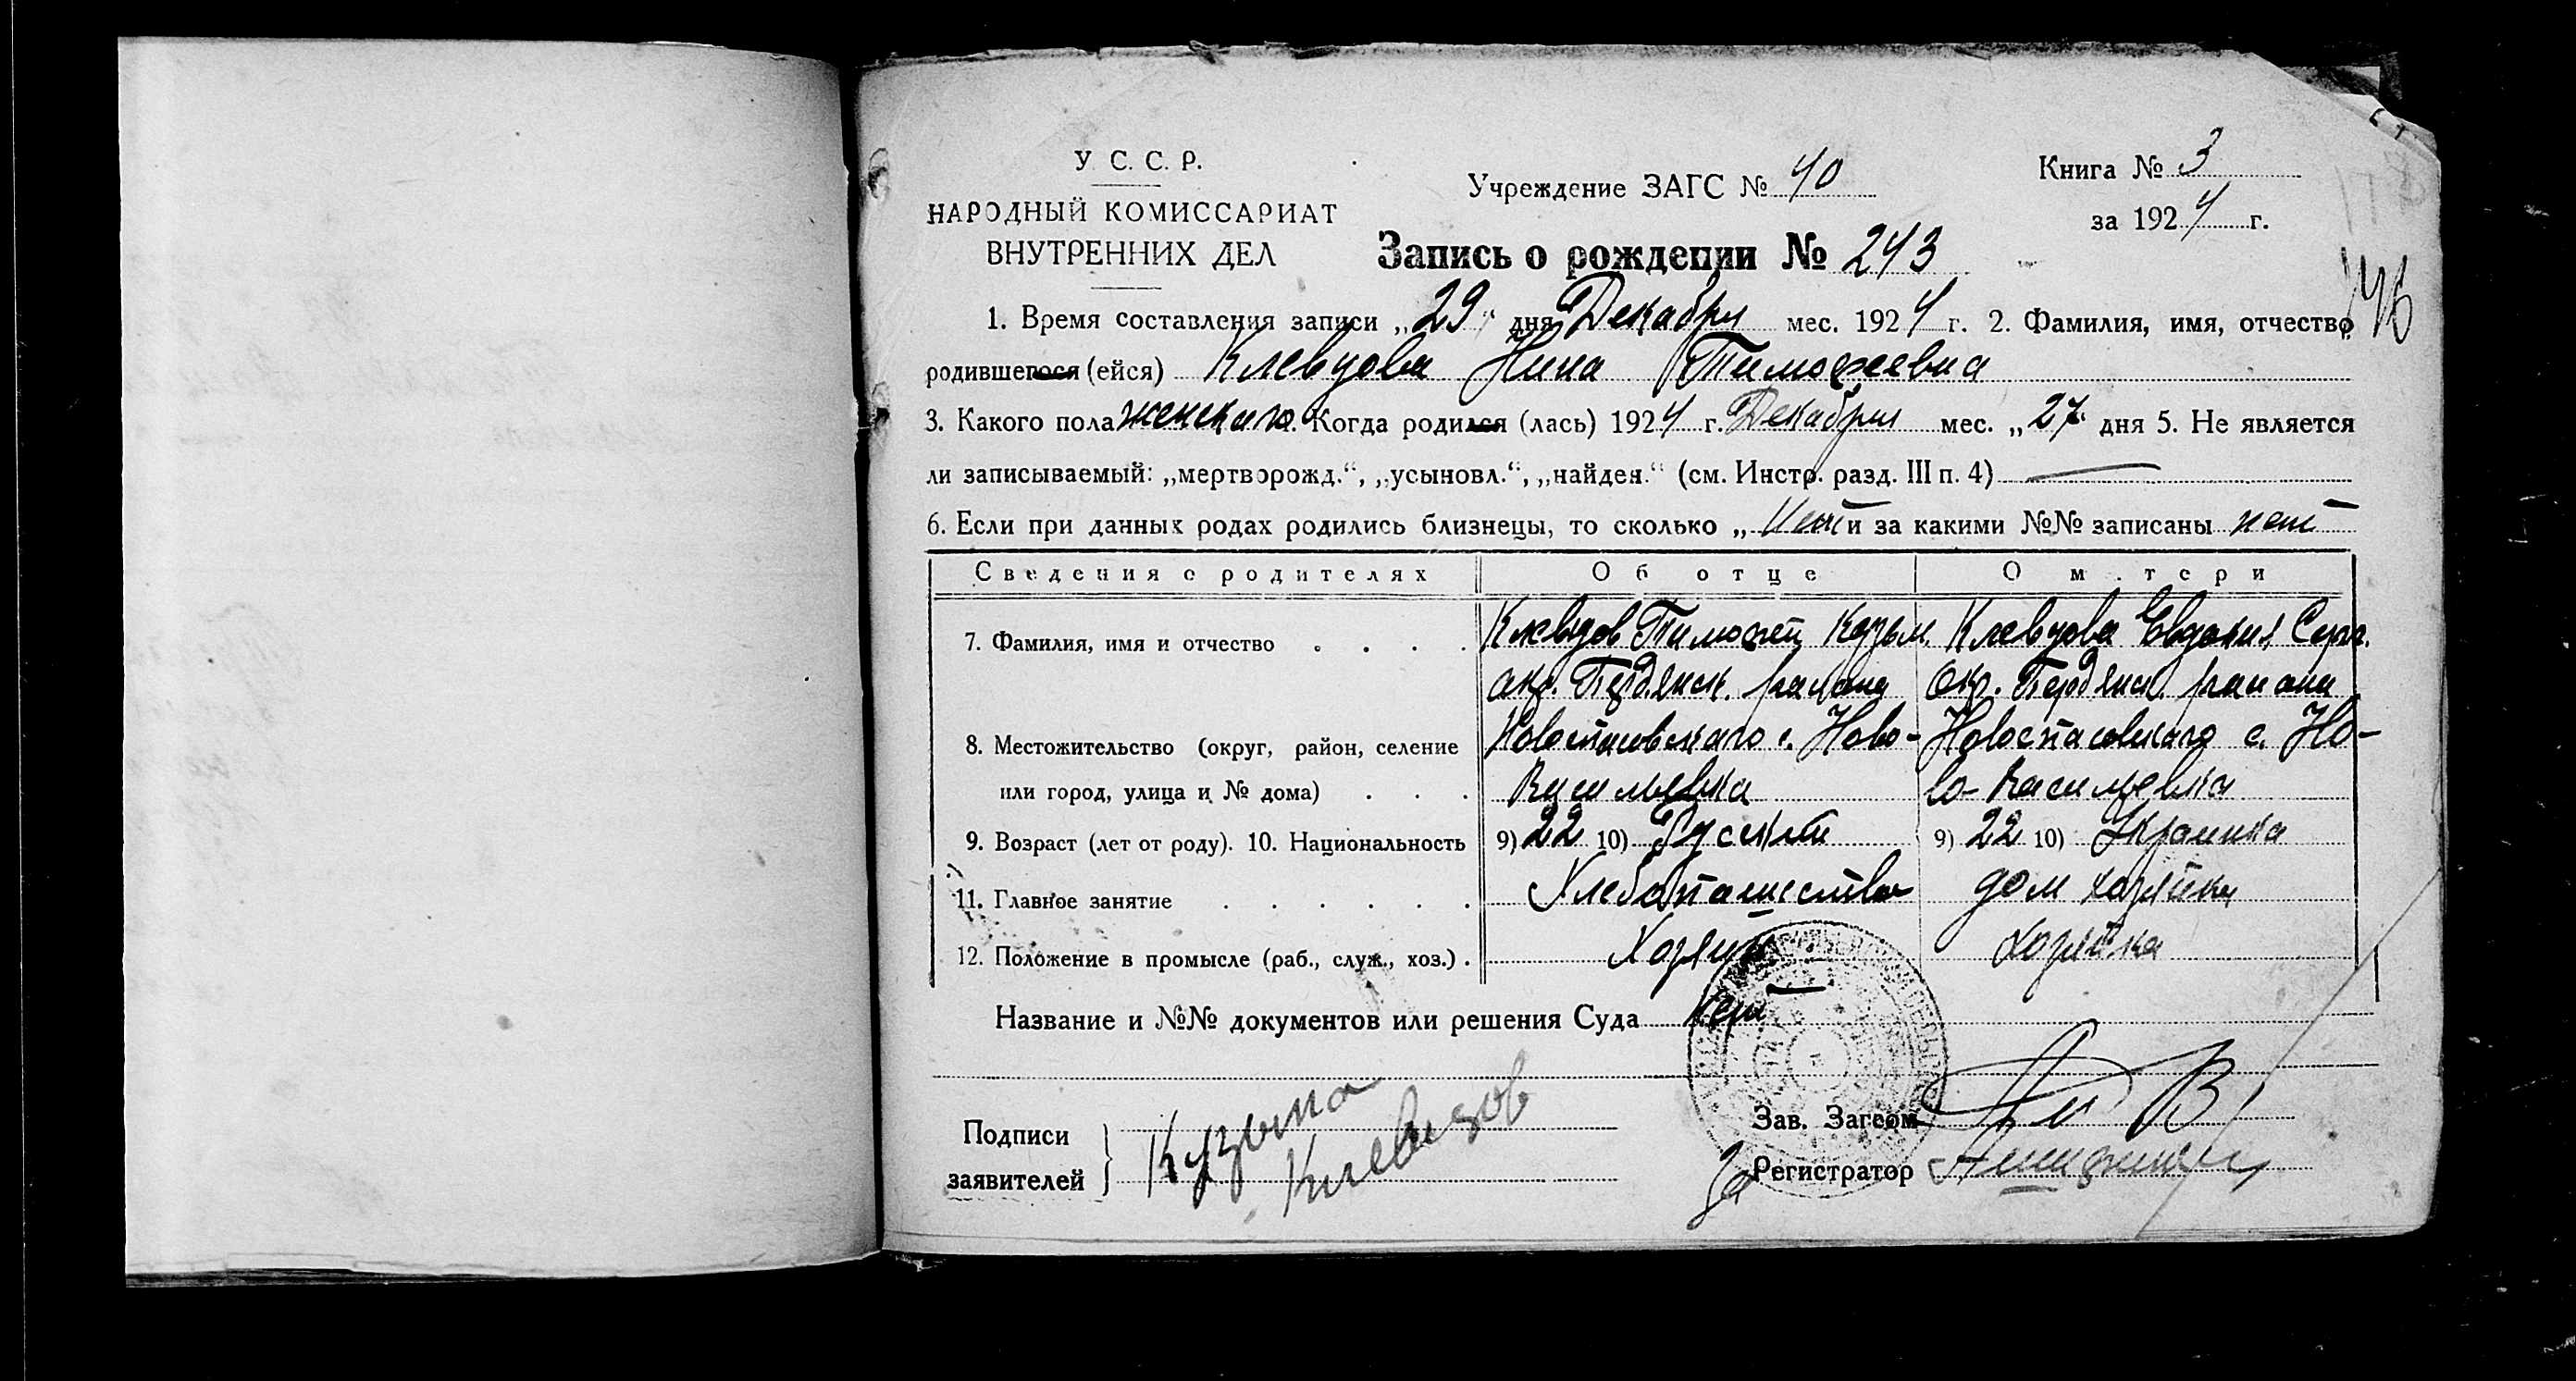 У. С. С. Р.
НАРОДНЫЙ КОМИССАРИАТ
ВНУТРЕННИХ ДЕЛ
Учреждение ЗАГС № 40
Книга № 3
за 1924 г.
Запись о рождении № 243
146
1. Время составления записи „29“ дня Декабря мес. 1924 г. 2. Фамилия, имя, отчество
родившегося (ейся) Клевцова Нина Тимофеевна
3. Какого пола женскаго. Когда родился (лась) 1924 г. Декабря мес. „27“ дня 5. Не является
ли записываемый: „мертворожд.“, „усыновл.“, „найден.“ (см. Инстр. разд. III п. 4)
6. Если при данных родах родились близнецы, то сколько „нет и за какими №№ записаны нет
Сведения о родителях Об отце О матери
7. Фамилия, имя и отчество . . . . Клевцов Тимофей Кузьм. Клевцова Евдокия Серг.
окр. Бердянск. района Окр. Бердянск. района
8. Местожительство (округ, район, селение Новоспасовскаго с. Ново- Новоспасовскаго с. Но-
или город, улица и № дома) . . . Васильевка во-Васильевка
9. Возраст (лет от роду). 10. Национальность 9) 22 10) Русский 9) 22 10) Украинка
11. Главное занятие . . . . . . Хлебопашество дом хозяйка
12. Положение в промысле (раб., служ., хоз.) . Хозяин хозяйка
Название и №№ документов или решения Суда нет
Подписи
заявителей
Кузьма
Клевцов
Зав. Загсом
За Регистратор